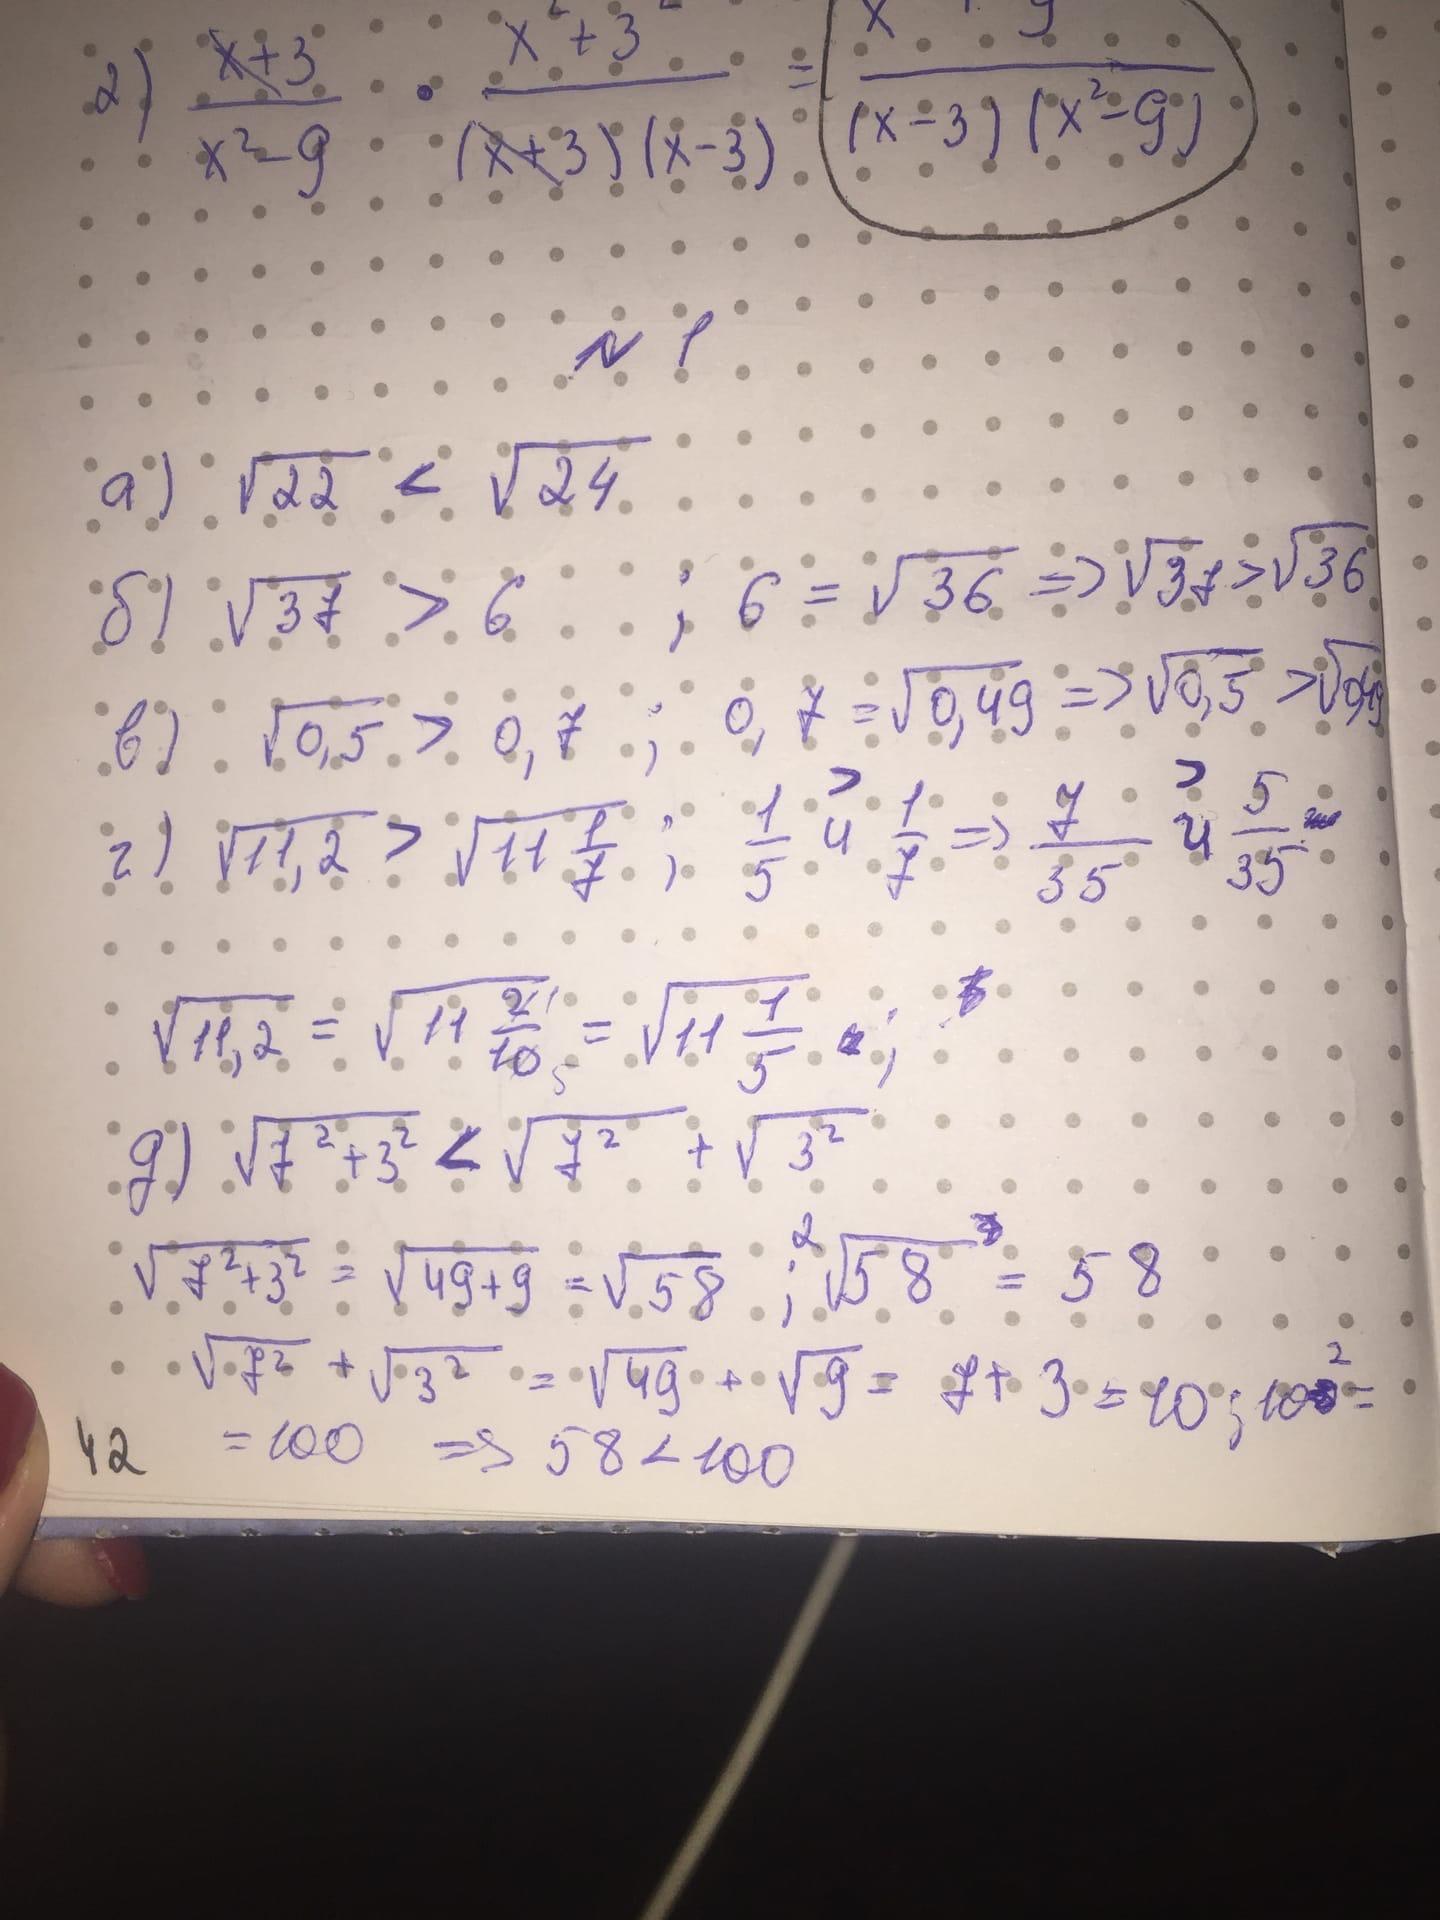 2) x+3/x²-9 · x²+3²/(x+3)(x-3) = x²+9/(x-3)(x²-9)
№ 1
а) √22 < √24
б) √37 > 6 ; 6 = √36 => √37 > √36
в) √0,5 > 0,7 ; 0,7 = √0,49 => √0,5 > √0,49
г) √11,2 > √11 1/7 ; 1/5 > и 1/7 => 7/35 > и 5/35
√11,2 = √11 2/10 = √11 1/5 ;
д) √7²+3² < √7² + √3²
√7²+3² = √49+9 = √58 ; ²√58 = 58
√7² + √3² = √49 + √9 = 7+3 = 10 ; 10² =
= 100 => 58 < 100
42